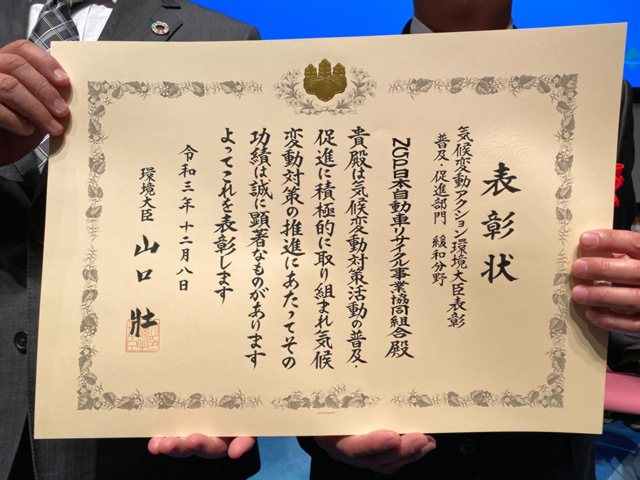 表彰状
気候変動アクション環境大臣表彰
普及・促進部門 緩和分野
NGP日本自動車リサイクル事業協同組合 殿
貴殿は気候変動対策活動の普及・
促進に積極的に取り組まれ気候
変動対策の推進にあたってその
功績は誠に顕著なものがあります
よってこれを表彰します
令和三年十二月八日
環境大臣 山口 壯